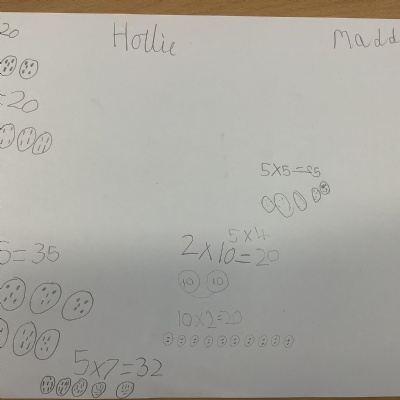 20
Hollie
Madd
=20
5x5=25
5=35
5x4
2x10=20
10 10
10x2=20
5x7=32